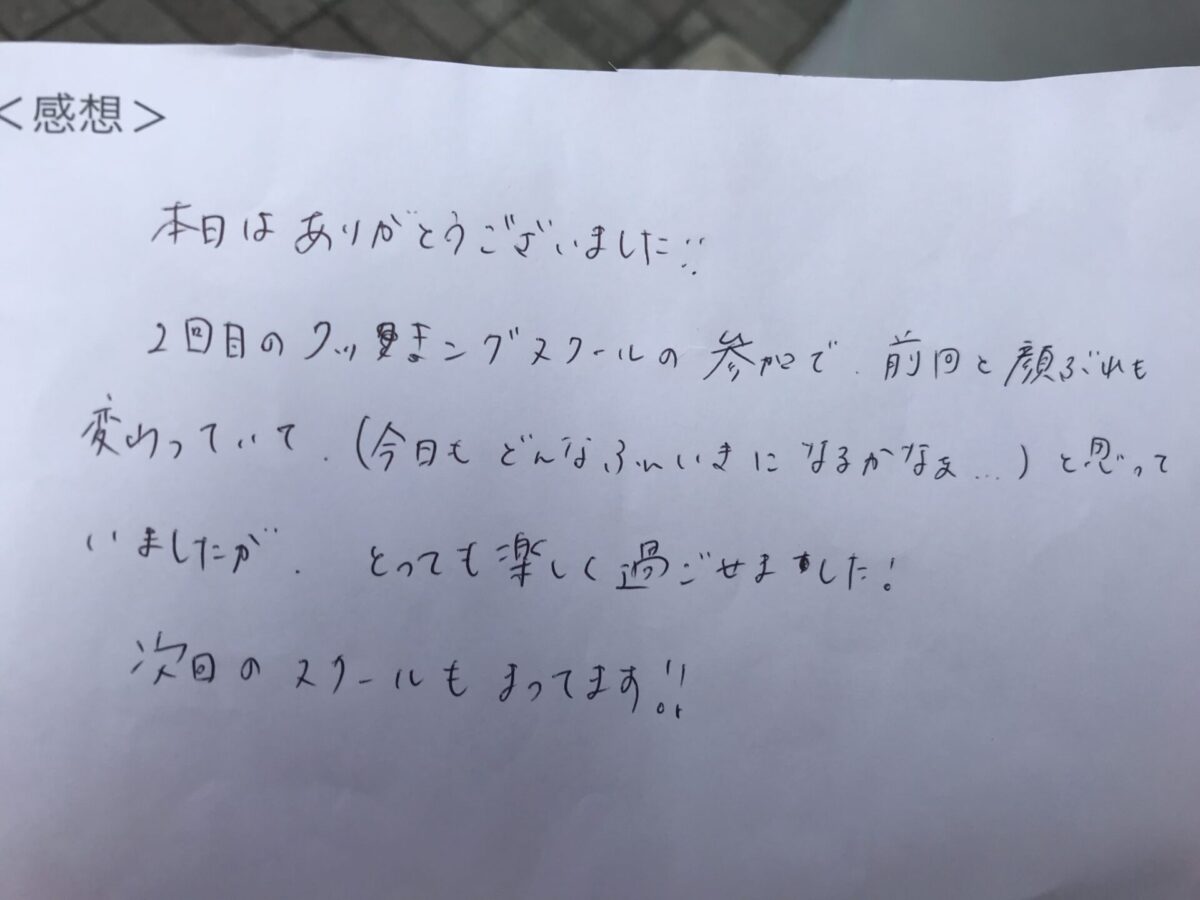 ＜感想＞
本日はありがとうございました!!
2回目の ングスクールの参加で、前回と顔ぶれも
変わっていて、(今日もどんなふんいきになるかなぁ…)と思って
いましたが、とっても楽しく過ごせました!
次回のスクールもまってます!!